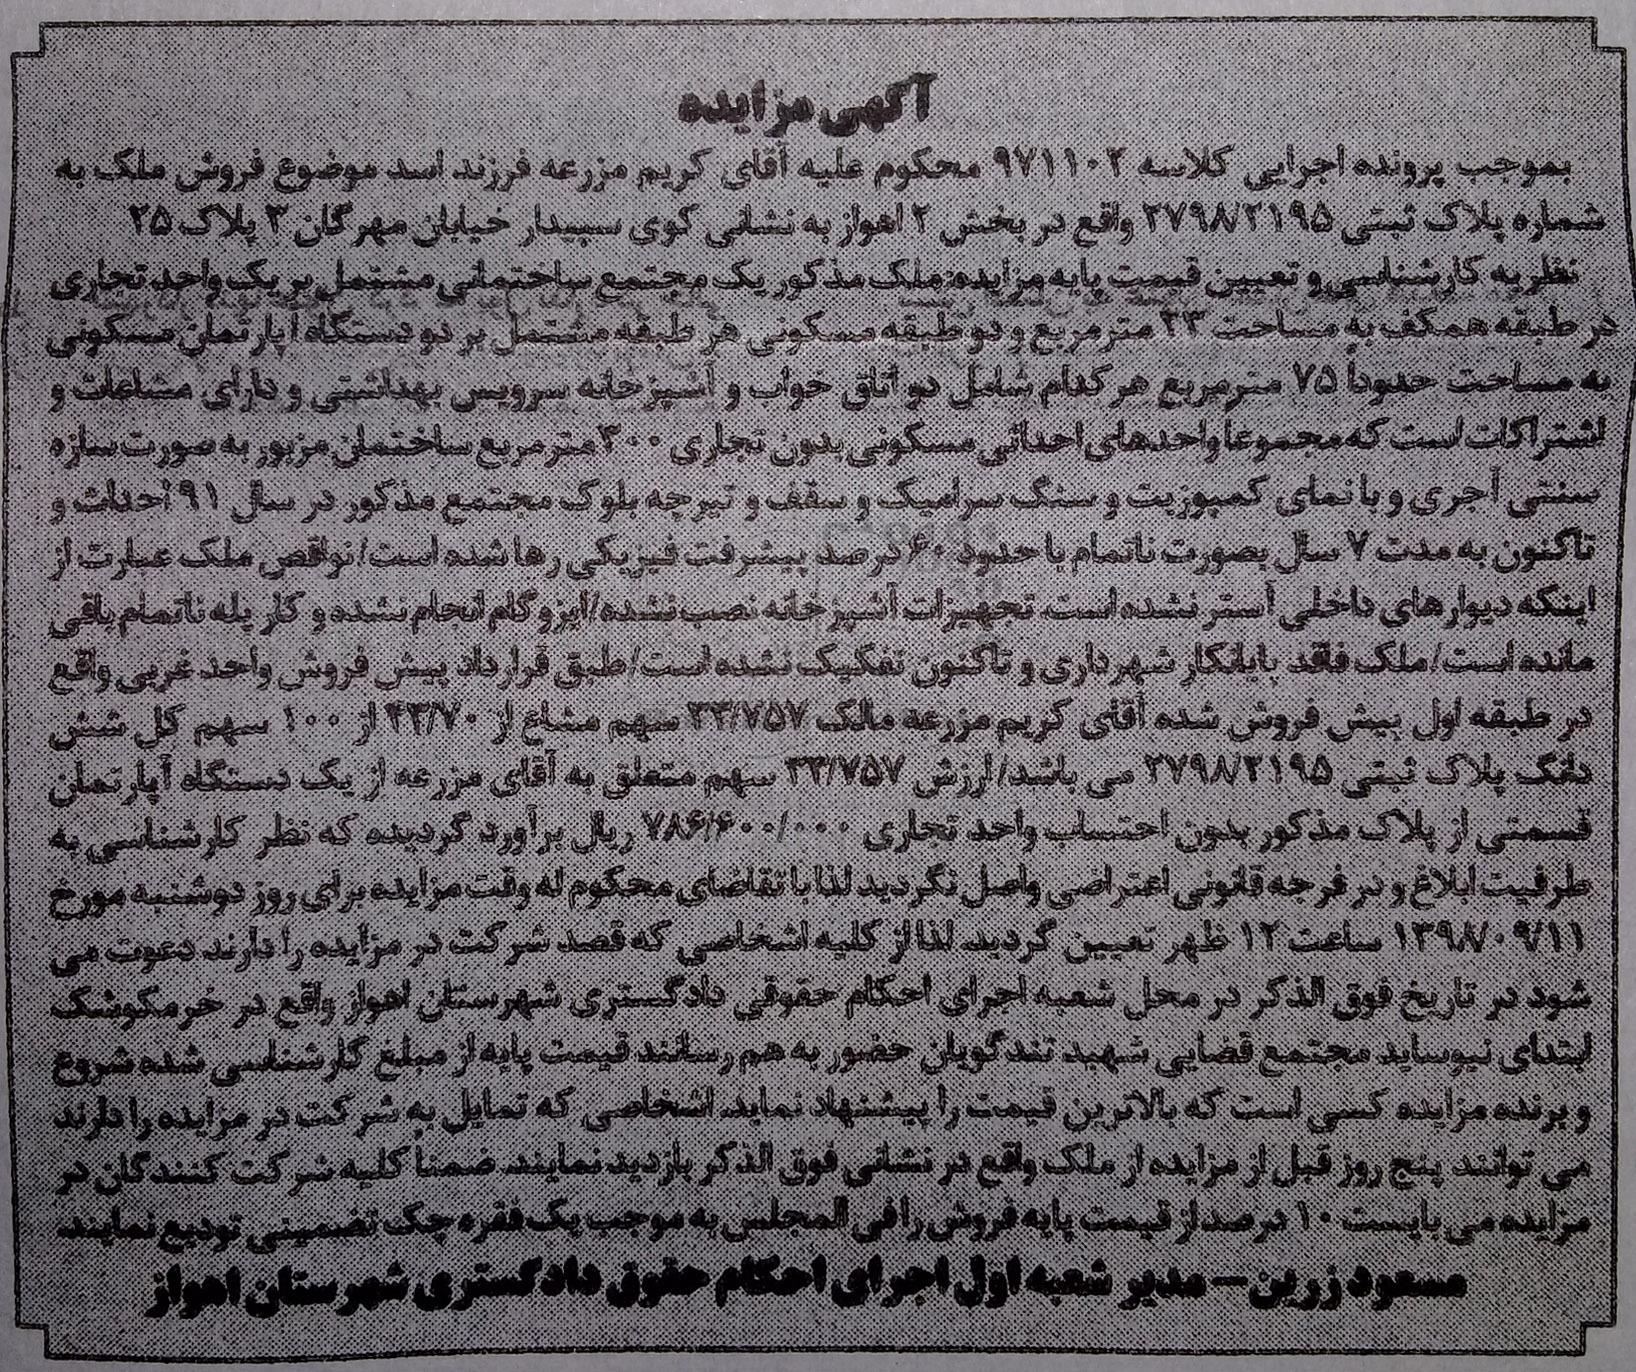 آگهی مزایده
بموجب پرونده اجرایی کلاسه ۹۷۱۱۰۲ محکوم علیه آقای کریم مزرعه فرزند اسد موضوع فروش ملک به
شماره پلاک ثبتی ۲۷۹۸/۲۱۹۵ واقع در بخش ۲ اهواز به نشانی کوی سپیدار خیابان مهرگان ۲ پلاک ۲۵
نظریه کارشناسی و تعیین قیمت پایه مزایده: ملک مذکور یک مجتمع ساختمانی مشتمل بر یک واحد تجاری
در طبقه همکف به مساحت ۲۳ مترمربع و دو طبقه مسکونی هر طبقه مشتمل بر دو دستگاه آپارتمان مسکونی
به مساحت حدوداً ۷۵ مترمربع هر کدام شامل دو اتاق خواب و آشپزخانه سرویس بهداشتی و دارای مشاعات و
اشتراکات است که مجموعا واحدهای احداثی مسکونی بدون تجاری ۳۰۰ مترمربع ساختمان مزبور به صورت سازه
سنتی آجری و با نمای کمپوزیت و سنگ سرامیک و سقف و تیرچه بلوک مجتمع مذکور در سال ۹۱ احداث و
تاکنون به مدت ۷ سال بصورت ناتمام با حدود ۶۰ درصد پیشرفت فیزیکی رها شده است/ نواقص ملک عبارت از
اینکه دیوارهای داخلی آستر نشده است. تجهیزات آشپزخانه نصب نشده/ ایزوگام انجام نشده و کار پله ناتمام باقی
مانده است/ ملک فاقد پایانکار شهرداری و تاکنون تفکیک نشده است/ طبق قرارداد پیش فروش واحد غربی واقع
در طبقه اول پیش فروش شده آقای کریم مزرعه مالک ۳۳/۷۵۷ سهم مشاع از ۴۳/۷۰ از ۱۰۰ سهم کل شش
دانگ پلاک ثبتی ۲۷۹۸/۲۱۹۵ می باشد/ ارزش ۳۳/۷۵۷ سهم متعلق به آقای مزرعه از یک دستگاه آپارتمان
قسمتی از پلاک مذکور بدون احتساب واحد تجاری ۷۸۶/۶۰۰/۰۰۰ ریال برآورد گردیده که نظر کارشناسی به
طرفیت ابلاغ و در فرجه قانونی اعتراضی واصل نگردید لذا با تقاضای محکوم له وقت مزایده برای روز دوشنبه مورخ
۱۳۹۸/۰۹/۱۱ ساعت ۱۲ ظهر تعیین گردید. لذا از کلیه اشخاصی که قصد شرکت در مزایده را دارند دعوت می
شود در تاریخ فوق الذکر در محل شعبه اجرای احکام حقوقی دادگستری شهرستان اهواز واقع در خرمکوشک
ابتدای نیوساید مجتمع قضایی شهید تندگویان حضور به هم رسانند قیمت پایه از مبلغ کارشناسی شده شروع
و برنده مزایده کسی است که بالاترین قیمت را پیشنهاد نماید. اشخاصی که تمایل به شرکت در مزایده را دارند
می توانند پنج روز قبل از مزایده از ملک واقع در نشانی فوق الذکر بازدید نمایند. ضمناً کلیه شرکت کنندگان در
مزایده می بایست ۱۰ درصد از قیمت پایه فروش را فی المجلس به موجب یک فقره چک تضمینی تودیع نمایند.
مسعود زرین – مدیر شعبه اول اجرای احکام حقوق دادگستری شهرستان اهواز